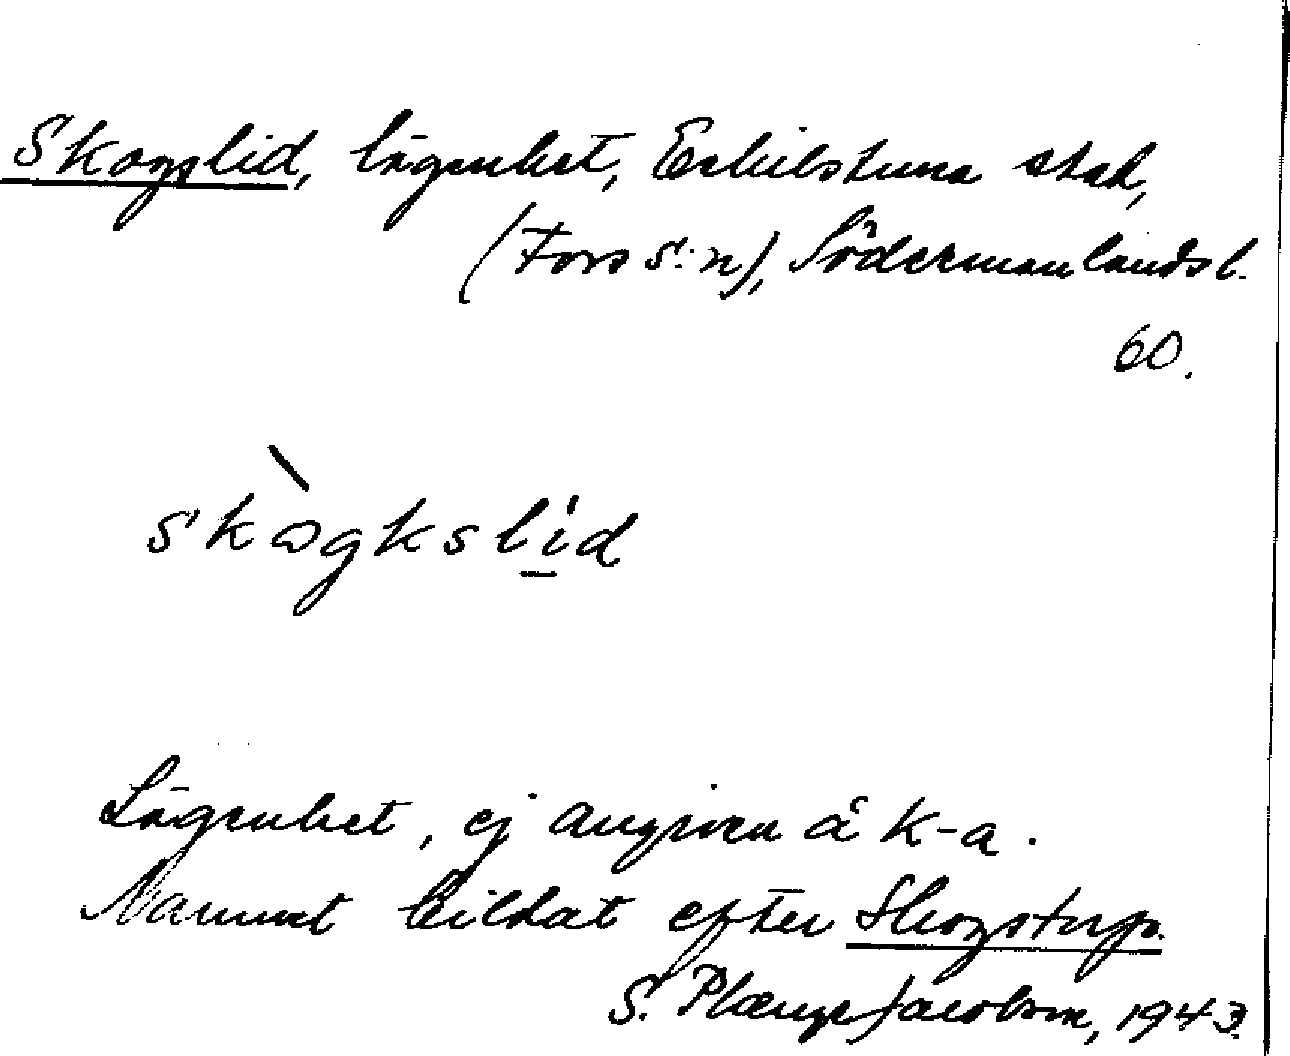 Skogslid, lägenhet, Eskilstuna stad,
(Fors s:n), Södermanlands l.
60.
skògkslid
Lägenhet, ej angiven å k-a.
Namnet bildat efter Skogstorp.
S. Plænge Jacobson, 1943.